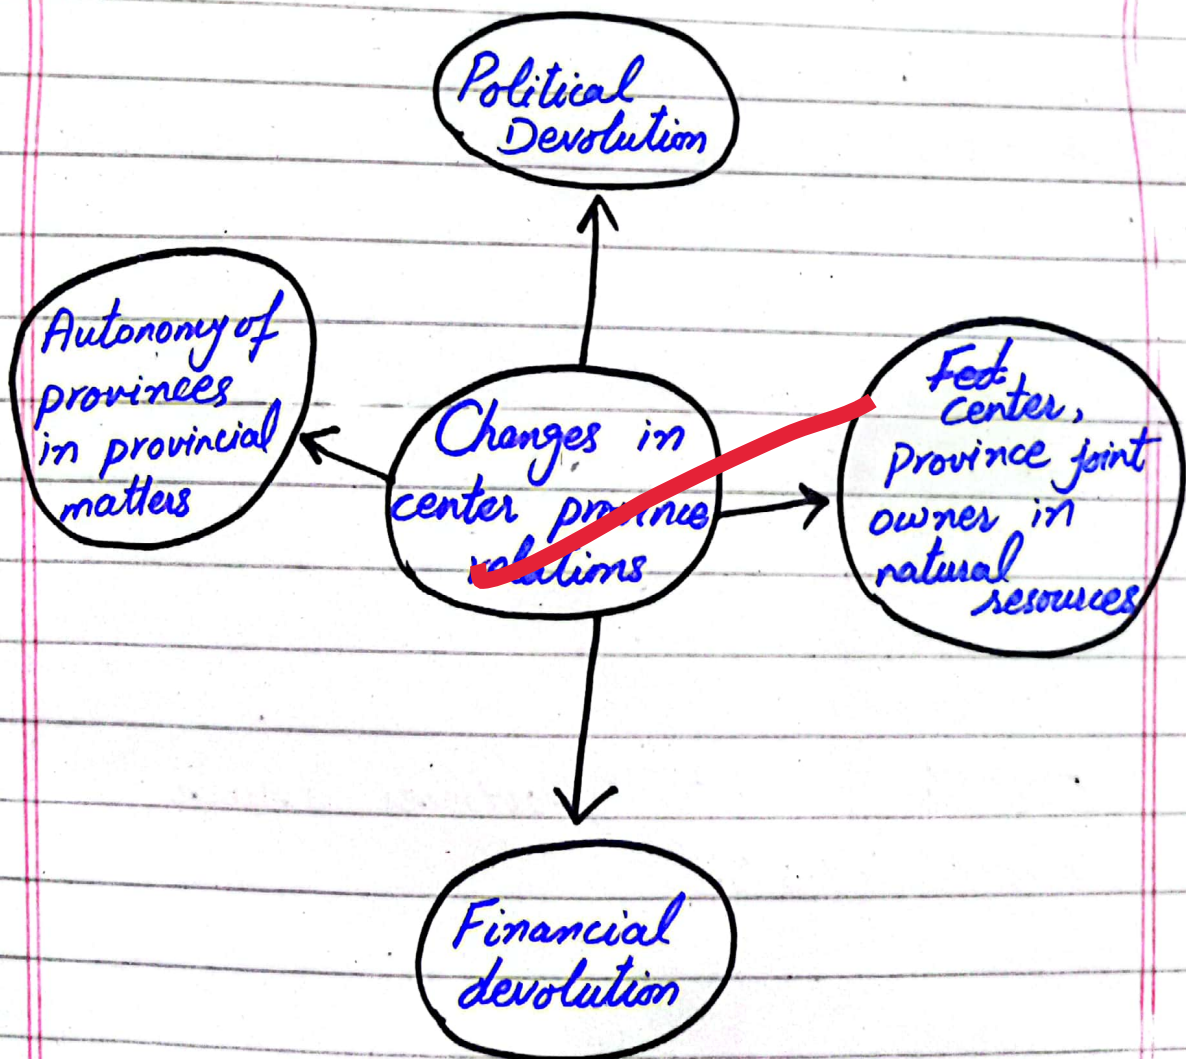 Political
Devolution
Autonomy of
provinces
in provincial
matters
Changes in
center province
relations
Fed,
center,
province joint
owner in
natural
resources
Financial
devolution